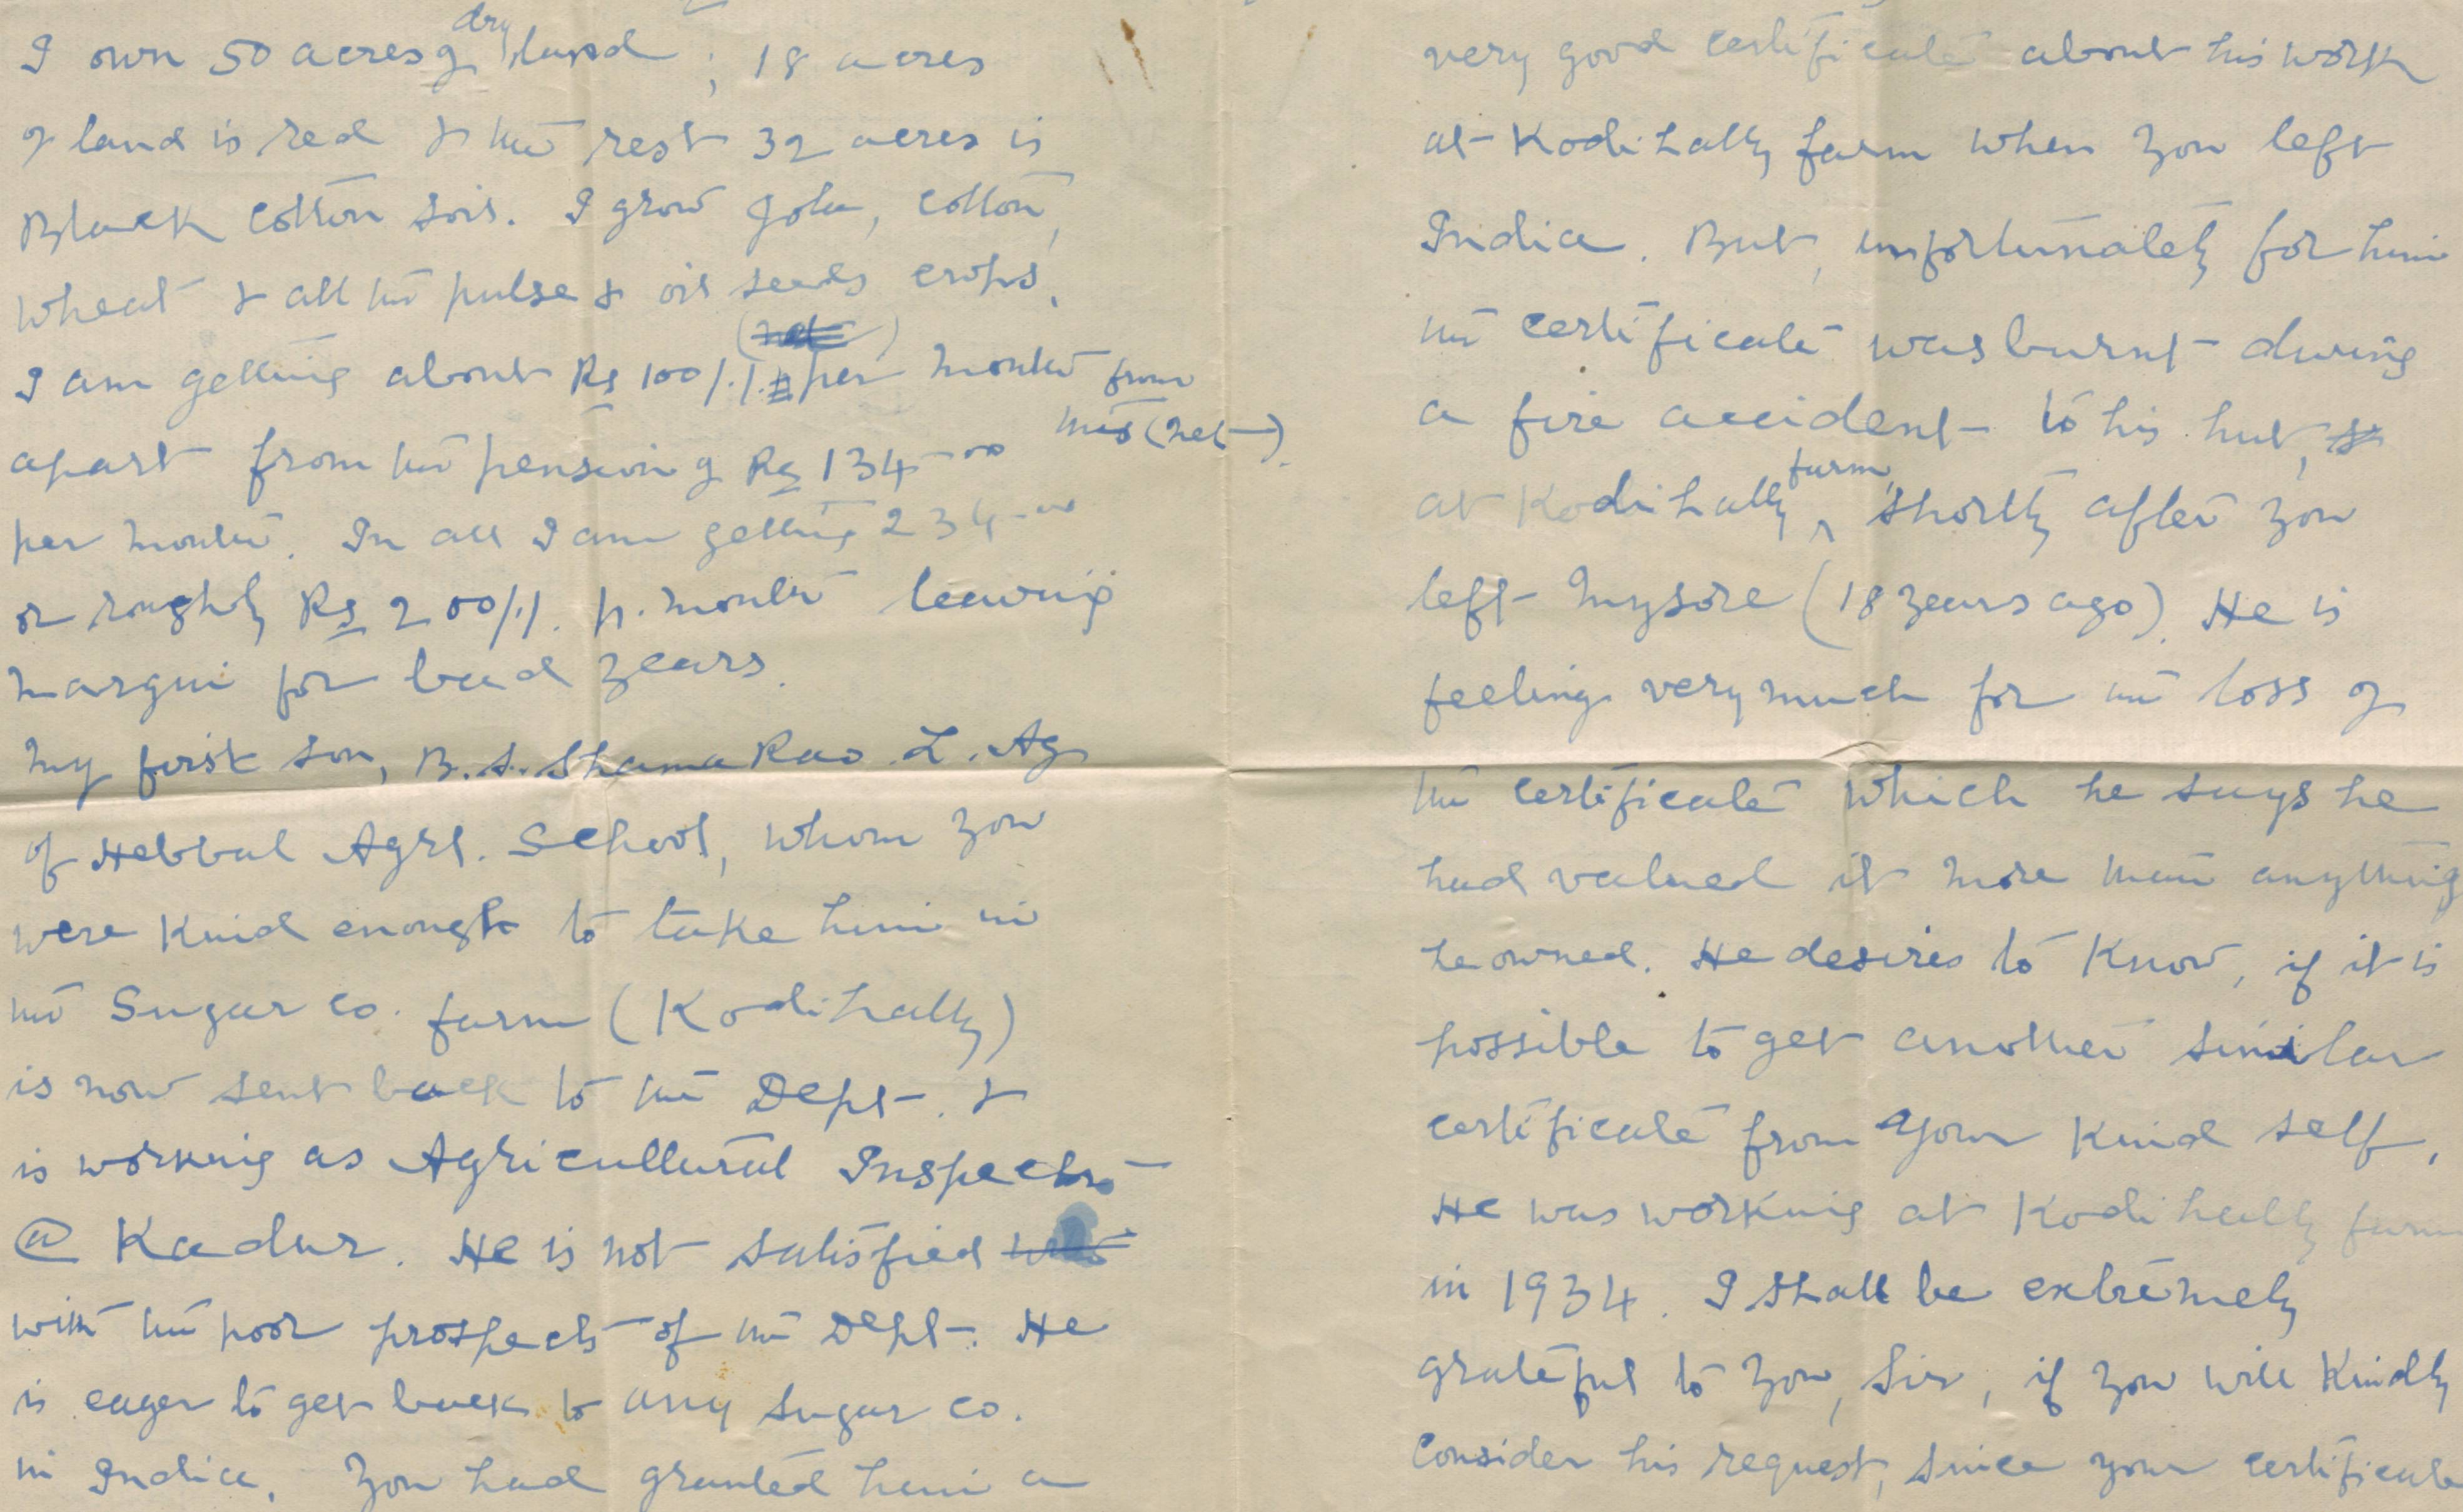 I own 50 acres of dry land ; 18 acres
of land is red & the rest 32 acres is
Black cotton soil. I grow Jola, cotton,
wheat & all the pulse & oil seeds crops.
I am getting about Rs 100/-/- per month from
this (net).
apart from the pension of Rs 134-00
per month. In all I am getting 234-00
or roughly Rs 200/-/- p. month leaving
margin for bad years.
My first son, B.S. Shama Rao L. Ag
of Hebbal Agrl. School, whom you
were kind enough to take him in
the Sugar Co. farm (Kodihally)
is now sent back to the Dept. &
is working as Agricultural Inspector
@ Kadur. He is not satisfied
with the poor prospects of the Dept. He
is eager to get back to any Sugar Co.
in India. You had granted him a
very good certificate about his work
at Kodihally farm when you left
India. But, unfortunately for him
the certificate was burnt during
a fire accident to his hut,
at Kodihally farm, shortly after you
left Mysore (18 years ago). He is
feeling very much for the loss of
the certificate which he says he
had valued it more than anything
he owned. He desires to know, if it is
possible to get another similar
certificate from your kind self.
He was working at Kodihally farm
in 1934. I shall be extremely
grateful to you, Sir, if you will kindly
consider his request, since your certificate